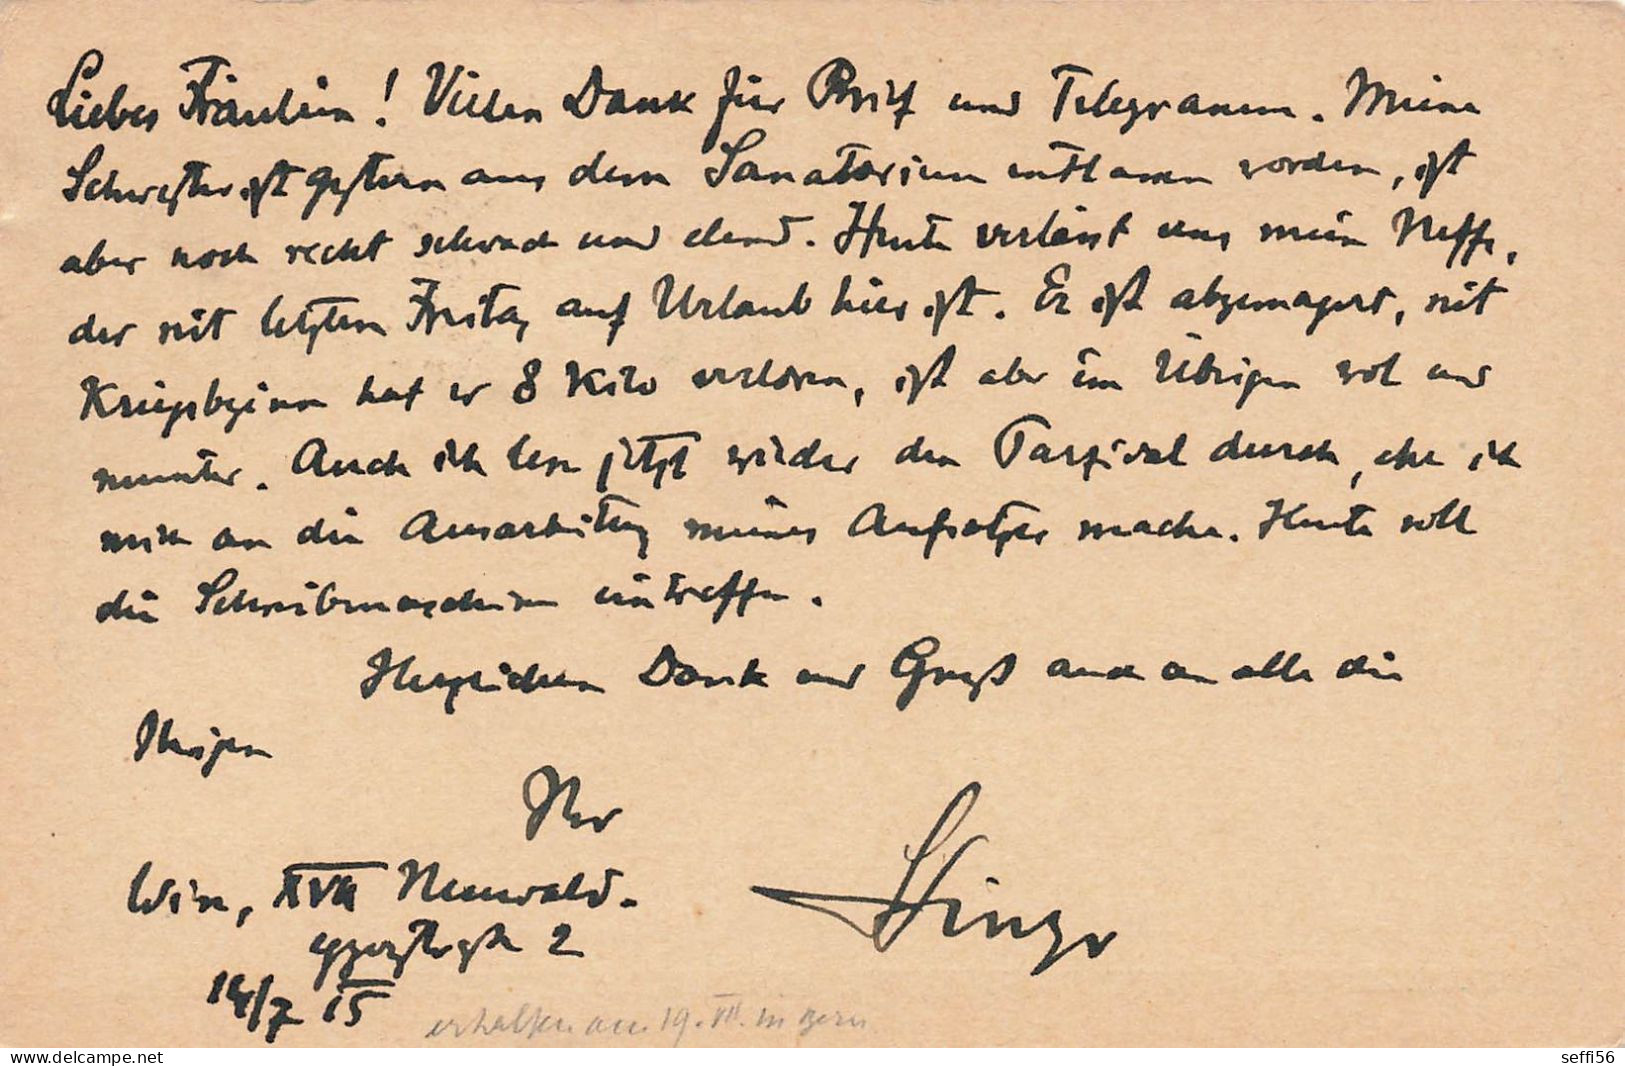 Liebes Fräulein! Vielen Dank für Brief und Telegramm. Meine
Schwester ist gestern aus dem Sanatorium entlassen worden, ist
aber noch recht schwach und elend. Heute verlässt uns mein Neffe,
der seit letztem Freitag auf Urlaub hier ist. Er ist abgemagert, seit
Kriegsbeginn hat er 8 Kilo verloren, ist aber im Übrigen wol und
munter. Auch ich lese jetzt wieder den Parzival durch, ehe ich
mich an die Ausarbeitung meines Aufsatzes mache. Heute soll
die Schreibmaschine eintreffen.
Herzlichen Dank und Gruß auch an alle die
Ihrigen
Ihr
Wien, XVIII Neuwald-
eggerstr 2
14/7 15
erhalten am 19. VII. in Bern
www.delcampe.net
seffi56